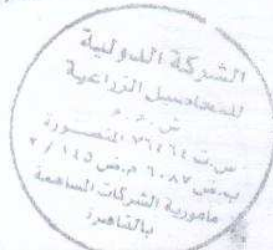 الشركة الدولية
للمحاصيل الزراعية
ش.م.م
س.ت ٧٦٤٦٤ المنصورة
ب.ض ٦٠٨٧ م.ض ١٤٥ / ٢
مامورية الشركات المساهمة
بالقاهرة